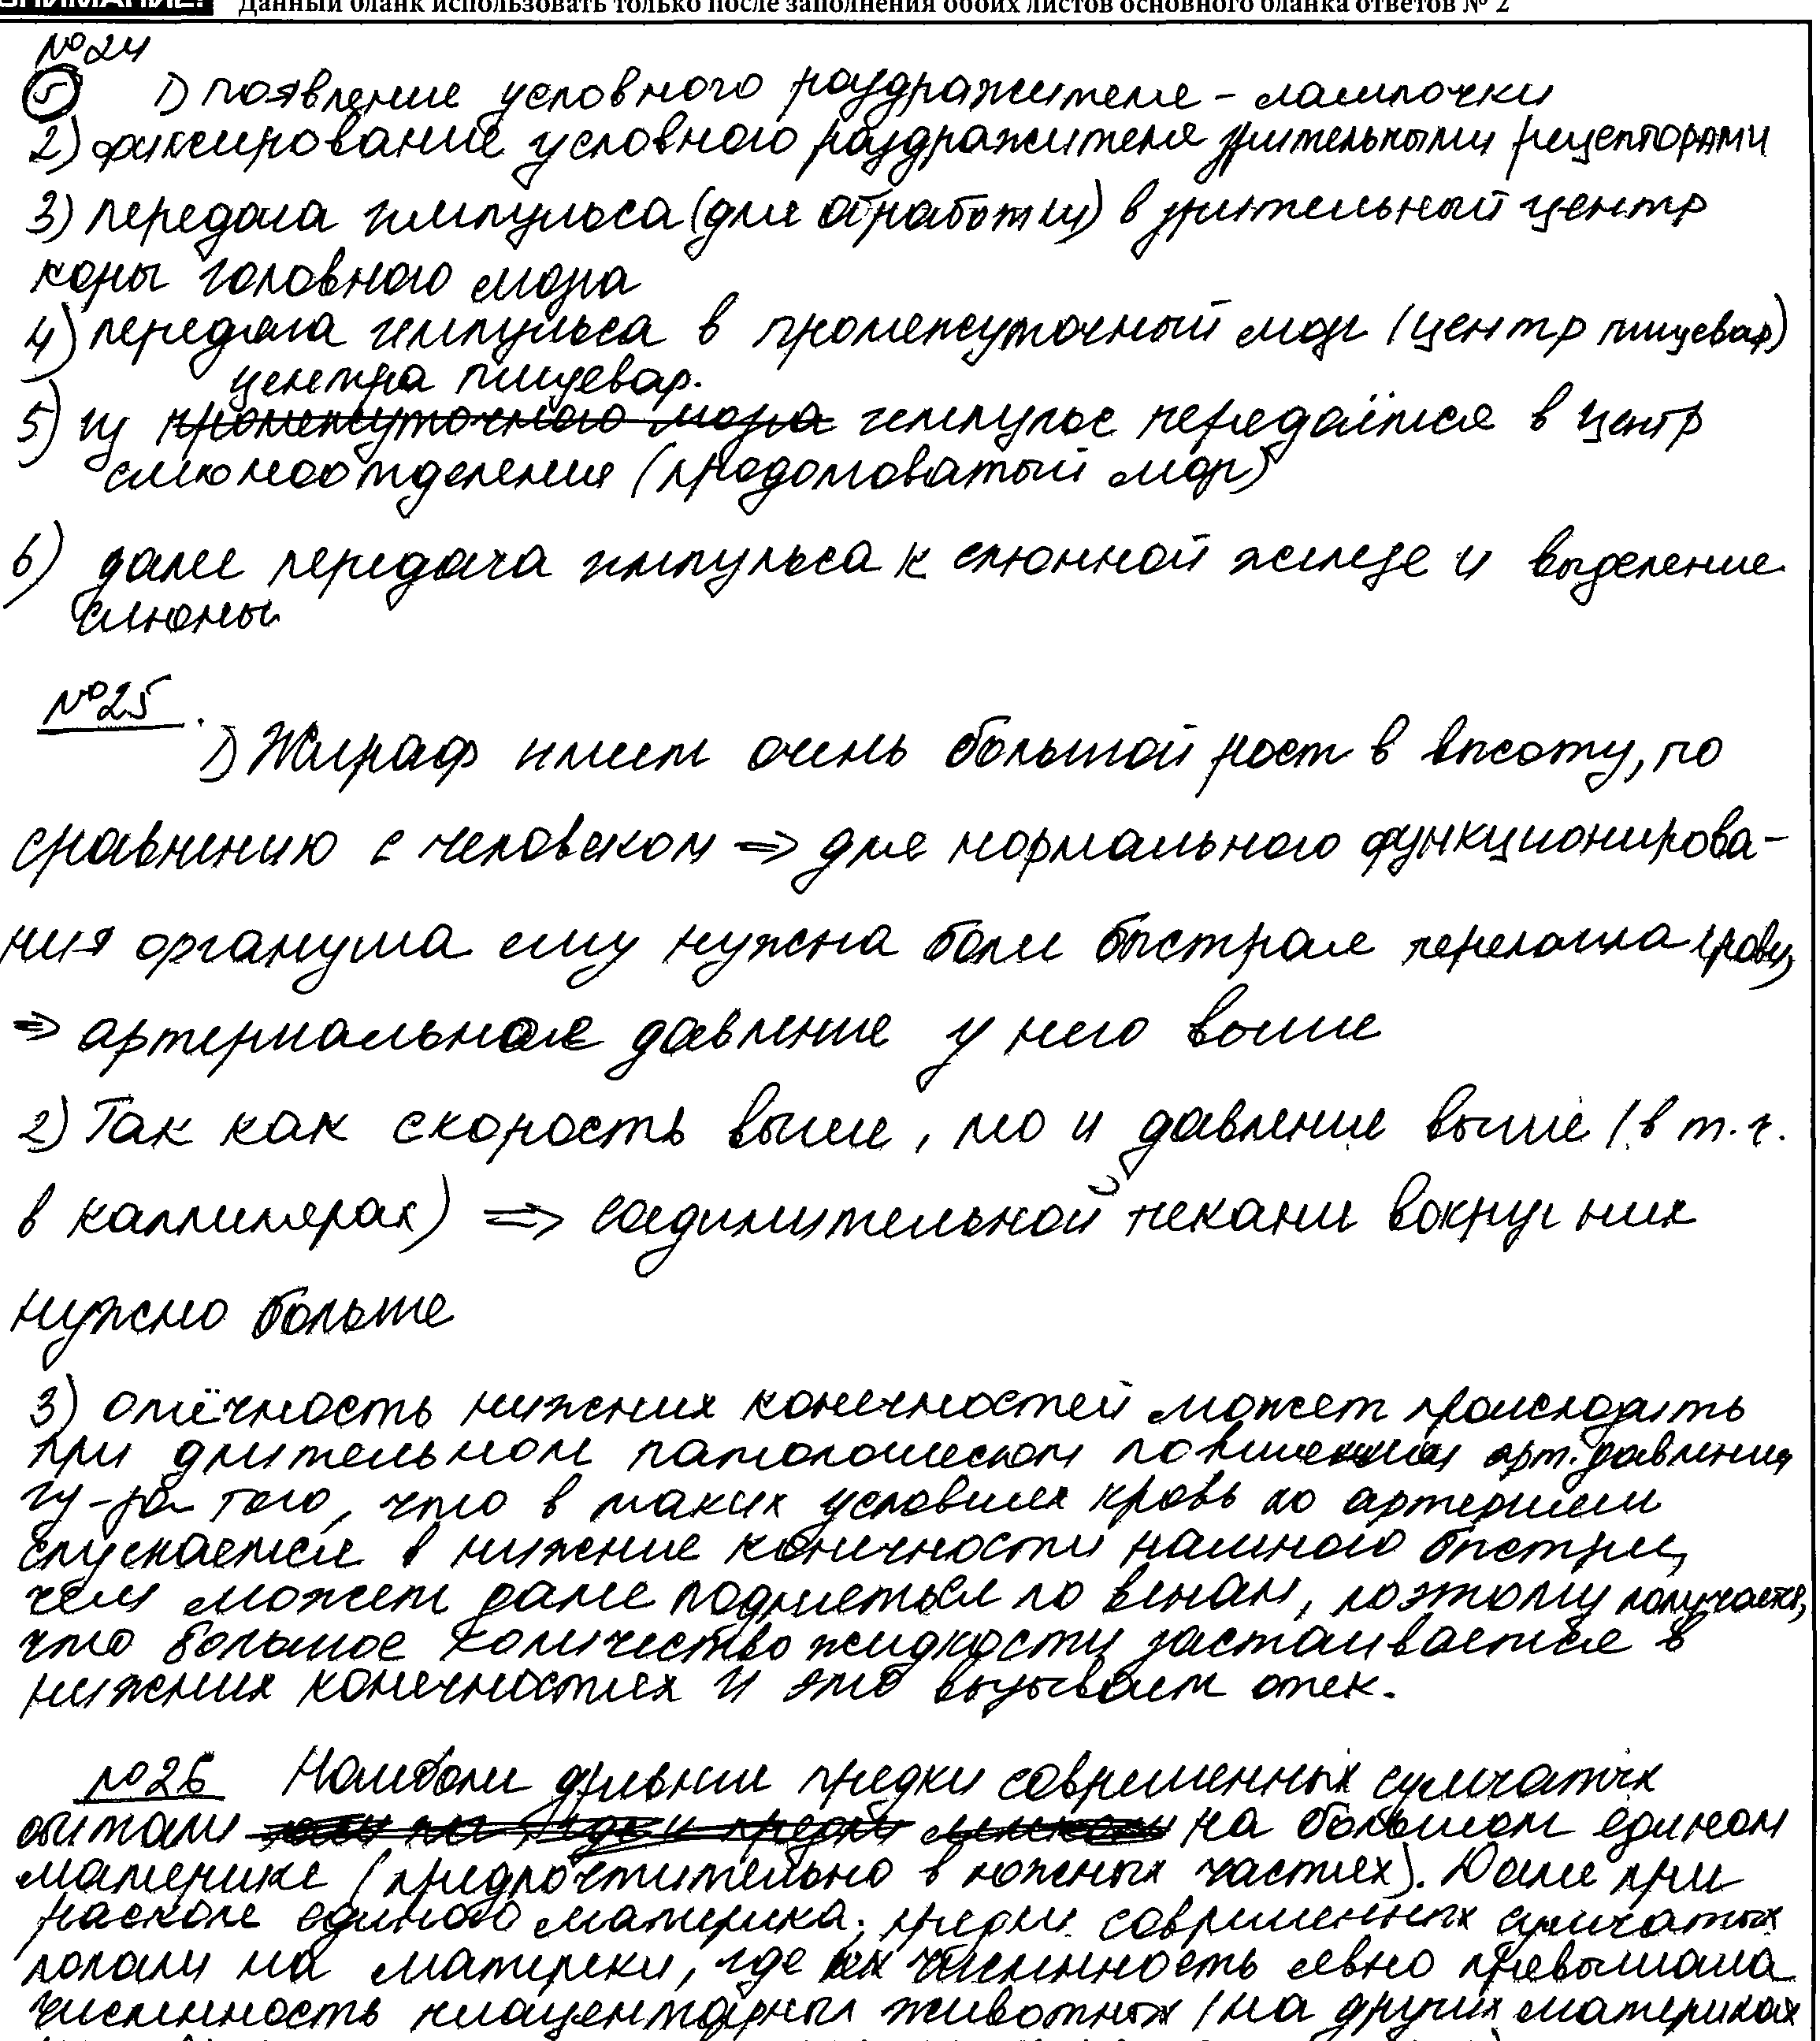 ВНИМАНИЕ! Данный бланк использовать только после заполнения обоих листов основного бланка ответов № 2
№24
5 1) появление условного раздражителя - лампочки
2) фиксирование условного раздражителя зрительными рецепторами
3) передача импульса (для обработки) в зрительный центр
коры головного мозга
4) передача импульса в промежуточный мозг (центр пищевар)
центра пищевар.
5) из промежуточного мозга импульс передаётся в центр
слюноотделения (продолговатый мозг)
6) далее передача импульса к слюнной железе и выделение
слюны.
№25.
1) Жираф имеет очень большой рост в высоту, по
сравнению с человеком => для нормального функционирова-
ния организма ему нужна более быстрая перекачка крови,
=> артериальное давление у него выше
2) Так как скорость выше, то и давление выше (в т.ч.
в капиллярах) => соединительной ткани вокруг них
нужно больше
3) отёчность нижних конечностей может происходить
при длительном патологическом повышении арт. давления
из-за того, что в таких условиях кровь по артериям
спускается в нижние конечности намного быстрее,
чем может даже подняться по венам, поэтому получается,
что большое количество жидкости застаивается в
нижних конечностях и это вызывает отек.
№26 Наиболее древние предки современных сумчатых
обитали на большом едином
материке (предпочтительно в южных частях). Далее при
расколе единого материка, предки современных сумчатых
попали на материки, где их численность явно превышала
численность плацентарных животных (на других материках